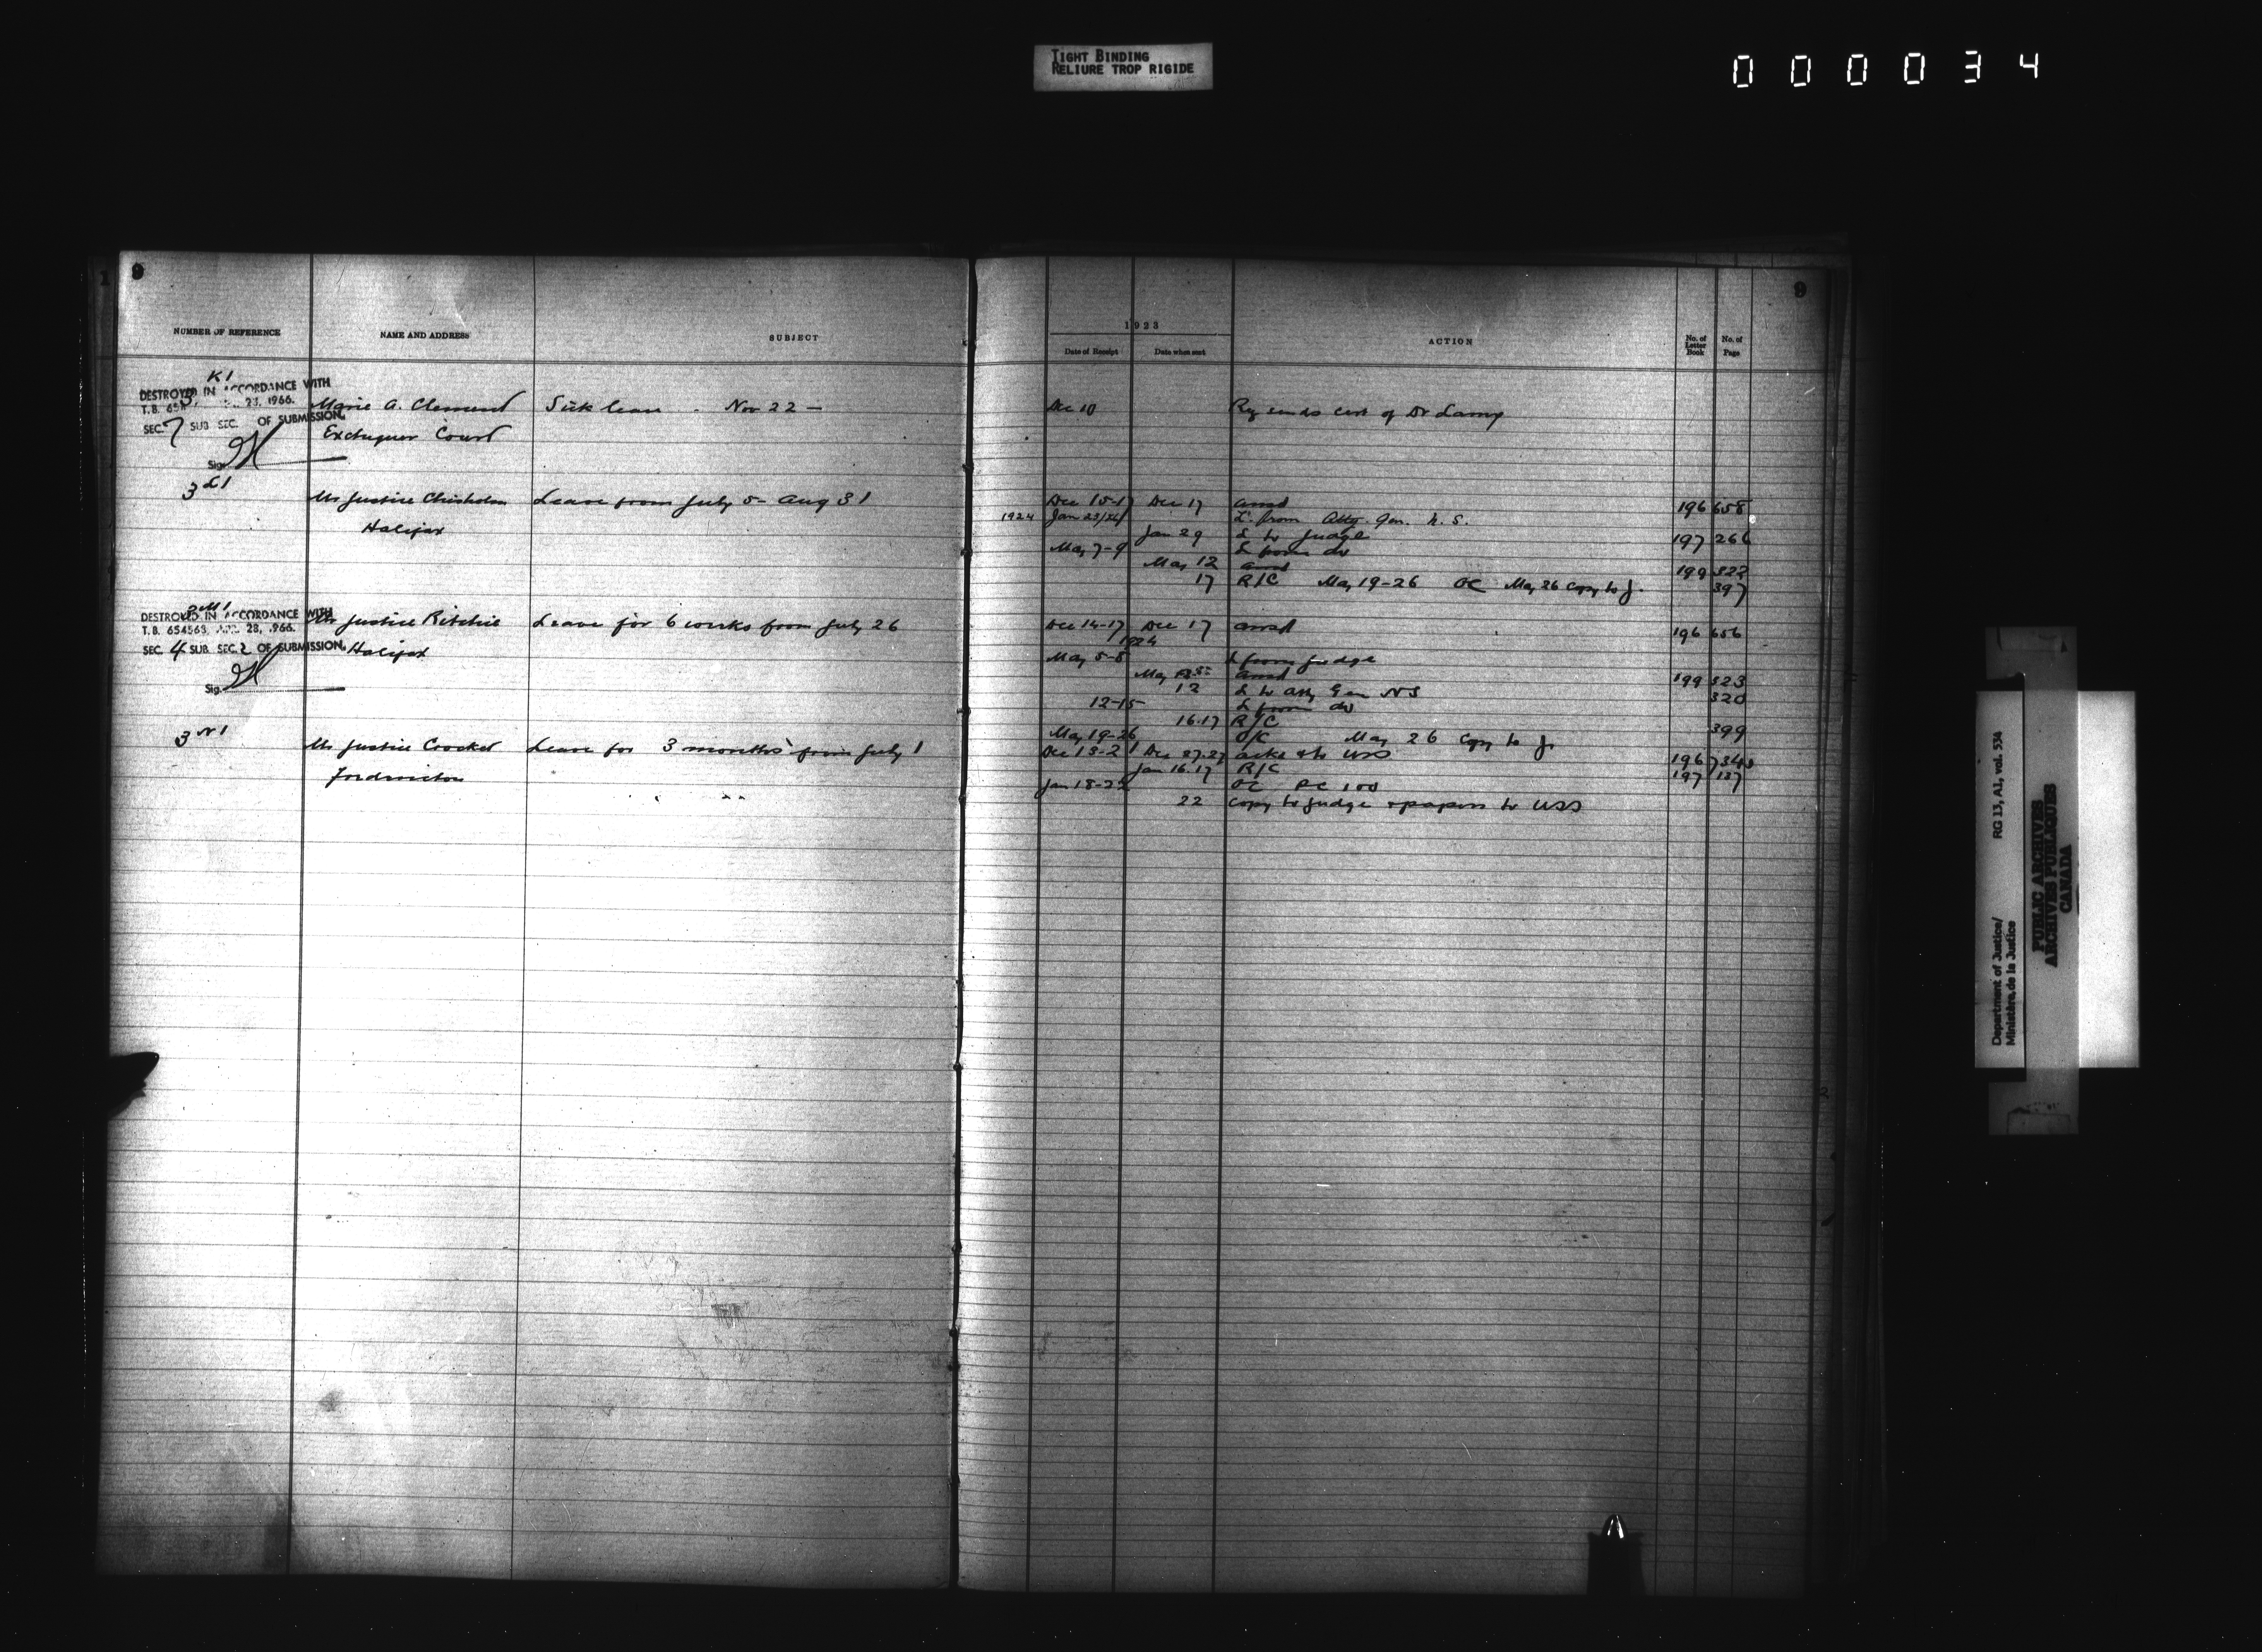 TIGHT BINDING
RELIURE TROP RIGIDE
000034
9
9
NUMBER OF REFERENCE NAME AND ADDRESS SUBJECT
1923
Date of Receipt Date when sent ACTION No. of Letter Book No. of Page
K1
3
DESTROYED IN ACCORDANCE WITH
T.B. 23, 1966.
SEC. 7 SUB SEC. OF SUBMISSION.
Sig.
Marie A. Clement Sick leave - Nov 22 — Dec 10 Rg sends cert of Dr
Exchequer Court
3 L1 Mr Justice Chisholm Leave from July 5 - Aug 31 Dec 15-17 Dec 17 ansd 196 658
Halifax
1924 Jan 23/24 L. from Atty. Gen. N.S.
Jan 29 L to Judge 197 266
May 7-9 L from do
May 12 ansd 199 322
17 R/C May 19-26 OC May 26 copy to J. 397
3 M1
DESTROYED IN ACCORDANCE WITH
T.B. 654563, 28, 1966.
SEC. 4 SUB. SEC. 2 OF SUBMISSION.
Sig.
Mr Justice Ritchie Leave for 6 weeks from July 26 Dec 14-17 Dec 17 ansd 196 656
Halifax
1924
May 5-8 L from judge
May ansd 199 323
12 L to Atty Gen NS 320
12-15 L from do
16.17 R/C 399
May 19-26 O/C May 26 Copy to J.
3 N1 Mr Justice Crocket Leave for 3 months from July 1 Dec 18-21 Dec 27.27 to USS 196 734
Fredericton
Jan 16.17 R/C 197 137
Jan 18-22 OC PC 100
22 copy to judge & papers to USS
Department of Justice/
Ministère de la Justice
RG 13, A1, vol. 534
PUBLIC ARCHIVES
ARCHIVES PUBLIQUES
CANADA